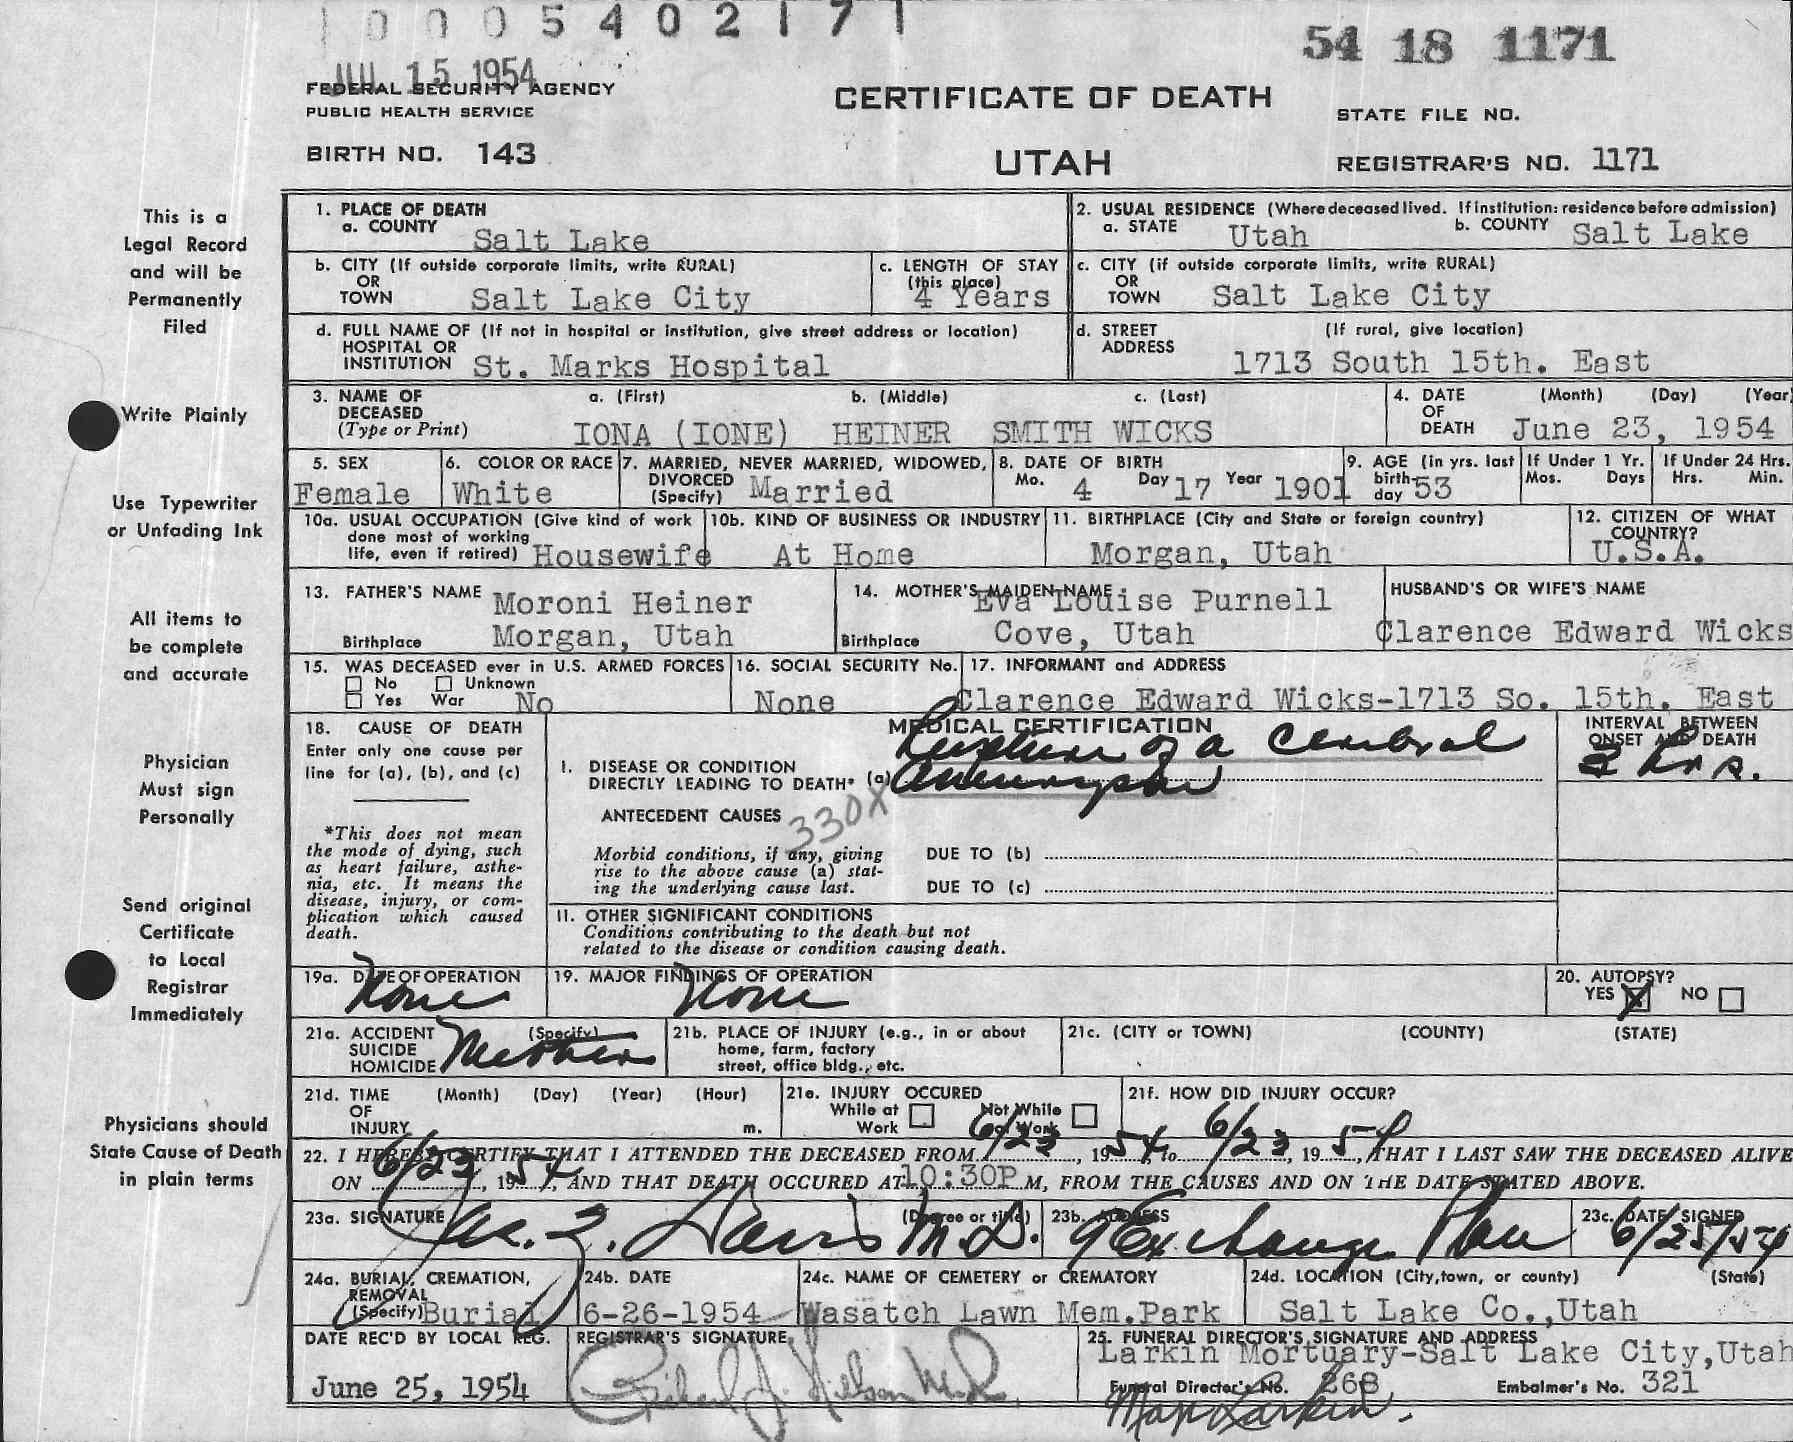 1 0 0 0 5 4 0 2 1 7 1
54 18 1171
JUL 15 1954
FEDERAL SECURITY AGENCY
PUBLIC HEALTH SERVICE
CERTIFICATE OF DEATH
STATE FILE NO.
BIRTH NO. 143
UTAH
REGISTRAR'S NO. 1171
This is a
Legal Record
and will be
Permanently
Filed
Write Plainly
Use Typewriter
or Unfading Ink
All items to
be complete
and accurate
Physician
Must sign
Personally
Send original
Certificate
to Local
Registrar
Immediately
Physicians should
State Cause of Death
in plain terms
1. PLACE OF DEATH
a. COUNTY Salt Lake
2. USUAL RESIDENCE (Where deceased lived. If institution: residence before admission)
a. STATE Utah b. COUNTY Salt Lake
b. CITY (If outside corporate limits, write RURAL)
OR
TOWN Salt Lake City
c. LENGTH OF STAY
(this place)
4 Years
c. CITY (if outside corporate limits, write RURAL)
OR
TOWN Salt Lake City
d. FULL NAME OF (If not in hospital or institution, give street address or location)
HOSPITAL OR
INSTITUTION St. Marks Hospital
d. STREET (If rural, give location)
ADDRESS
1713 South 15th. East
3. NAME OF a. (First) b. (Middle) c. (Last)
DECEASED
(Type or Print) IONA (IONE) HEINER SMITH WICKS
4. DATE (Month) (Day) (Year)
OF
DEATH June 23, 1954
5. SEX
Female
6. COLOR OR RACE
White
7. MARRIED, NEVER MARRIED, WIDOWED,
DIVORCED
(Specify) Married
8. DATE OF BIRTH
Mo. 4 Day 17 Year 1901
9. AGE (in yrs. last
birth-
day 53
If Under 1 Yr.
Mos. Days
If Under 24 Hrs.
Hrs. Min.
10a. USUAL OCCUPATION (Give kind of work
done most of working
life, even if retired) Housewife
10b. KIND OF BUSINESS OR INDUSTRY
At Home
11. BIRTHPLACE (City and State or foreign country)
Morgan, Utah
12. CITIZEN OF WHAT
COUNTRY?
U.S.A.
13. FATHER'S NAME Moroni Heiner
Birthplace Morgan, Utah
14. MOTHER'S MAIDEN NAME Eva Louise Purnell
Birthplace Cove, Utah
HUSBAND'S OR WIFE'S NAME
Clarence Edward Wicks
15. WAS DECEASED ever in U.S. ARMED FORCES
No Unknown
Yes War No
16. SOCIAL SECURITY No.
None
17. INFORMANT and ADDRESS
Clarence Edward Wicks-1713 So. 15th. East
18. CAUSE OF DEATH
Enter only one cause per
line for (a), (b), and (c)
*This does not mean
the mode of dying, such
as heart failure, asthe-
nia, etc. It means the
disease, injury, or com-
plication which caused
death.
MEDICAL CERTIFICATION
Rupture of a Cerebral
I. DISEASE OR CONDITION
DIRECTLY LEADING TO DEATH* (a) Aneurysm
INTERVAL BETWEEN
ONSET AND DEATH
2 hrs.
ANTECEDENT CAUSES 330X
Morbid conditions, if any, giving
rise to the above cause (a) stat-
ing the underlying cause last.
DUE TO (b)
DUE TO (c)
II. OTHER SIGNIFICANT CONDITIONS
Conditions contributing to the death but not
related to the disease or condition causing death.
19a. DATE OF OPERATION
None
19. MAJOR FINDINGS OF OPERATION
None
20. AUTOPSY?
YES X NO
21a. ACCIDENT (Specify)
SUICIDE
HOMICIDE
21b. PLACE OF INJURY (e.g., in or about
home, farm, factory
street, office bldg., etc.
21c. (CITY or TOWN) (COUNTY) (STATE)
21d. TIME (Month) (Day) (Year) (Hour)
OF
INJURY m.
21e. INJURY OCCURED
While at
Work
Not While
at Work
21f. HOW DID INJURY OCCUR?
22. I HEREBY CERTIFY THAT I ATTENDED THE DECEASED FROM 6/23, 1954, to 6/23, 1954, THAT I LAST SAW THE DECEASED ALIVE
ON 6/23, 1954, AND THAT DEATH OCCURED AT 10:30P M, FROM THE CAUSES AND ON THE DATE STATED ABOVE.
23a. SIGNATURE (Degree or title) M.D.
23b. ADDRESS
9 Exchange Place
23c. DATE SIGNED
6/25/54
24a. BURIAL, CREMATION,
REMOVAL
(Specify) Burial
24b. DATE
6-26-1954
24c. NAME OF CEMETERY or CREMATORY
Wasatch Lawn Mem.Park
24d. LOCATION (City,town, or county) (State)
Salt Lake Co.,Utah
DATE REC'D BY LOCAL REG.
June 25, 1954
REGISTRAR'S SIGNATURE
25. FUNERAL DIRECTOR'S SIGNATURE AND ADDRESS
Larkin Mortuary-Salt Lake City,Utah
Funeral Director's No. 268 Embalmer's No. 321